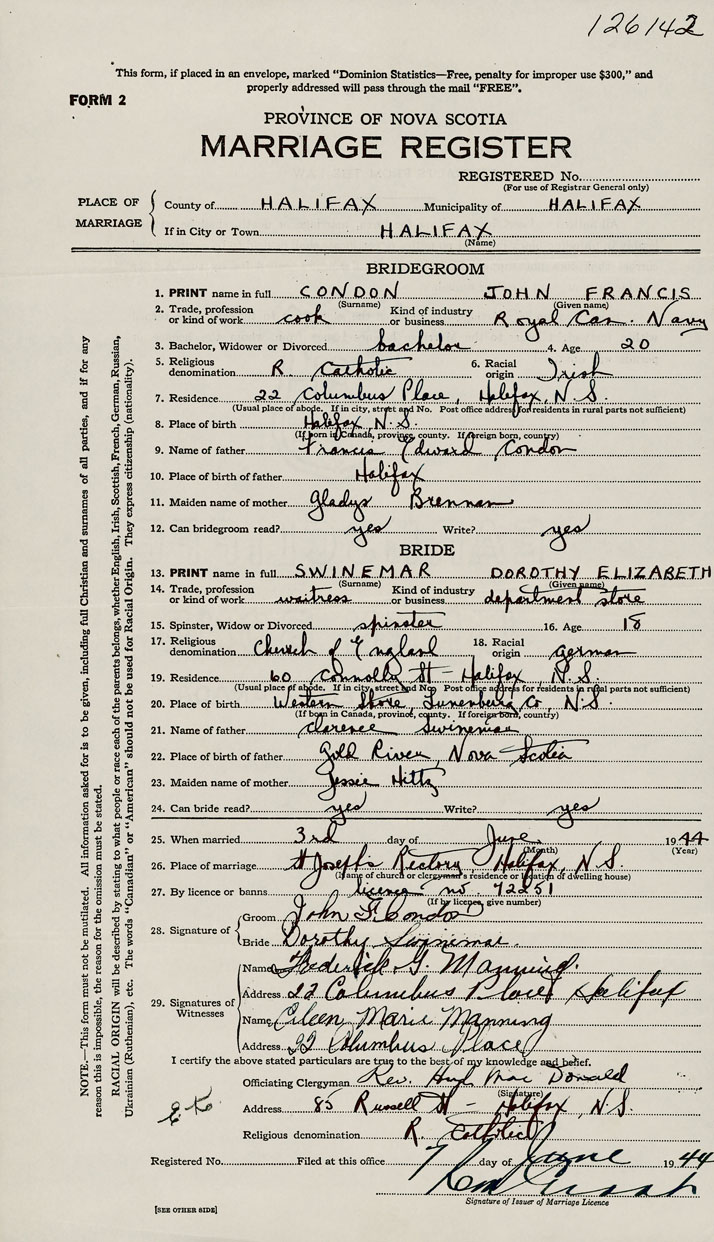 126142
This form, if placed in an envelope, marked "Dominion Statistics—Free, penalty for improper use $300," and
properly addressed will pass through the mail "FREE".
FORM 2
PROVINCE OF NOVA SCOTIA
MARRIAGE REGISTER
REGISTERED No.
(For use of Registrar General only)
PLACE OF MARRIAGE
County of HALIFAX Municipality of HALIFAX
If in City or Town HALIFAX
(Name)
BRIDEGROOM
1. PRINT name in full CONDON JOHN FRANCIS
(Surname) (Given name)
2. Trade, profession or kind of work cook Kind of industry or business Royal Can. Navy
3. Bachelor, Widower or Divorced bachelor 4. Age 20
5. Religious denomination R. Catholic 6. Racial origin Irish
7. Residence 22 Columbus Place, Halifax, N.S.
(Usual place of abode. If in city, street and No. Post office address for residents in rural parts not sufficient)
8. Place of birth Halifax, N.S.
(If born in Canada, province, county. If foreign born, country)
9. Name of father Francis Edward Condon
10. Place of birth of father Halifax
11. Maiden name of mother Gladys Brennan
12. Can bridegroom read? yes Write? yes
BRIDE
13. PRINT name in full SWINEMAR DOROTHY ELIZABETH
(Surname) (Given name)
14. Trade, profession or kind of work waitress Kind of industry or business department store
15. Spinster, Widow or Divorced spinster 16. Age 18
17. Religious denomination Church of England 18. Racial origin german
19. Residence 60 Connolly St - Halifax, N.S.
(Usual place of abode. If in city, street and No. Post office address for residents in rural parts not sufficient)
20. Place of birth Western Shore, Lunenburg Co, N.S.
(If born in Canada, province, county. If foreign born, country)
21. Name of father Clarence Swinemar
22. Place of birth of father Gold River, Nova Scotia
23. Maiden name of mother Jessie Hiltz
24. Can bride read? yes Write? yes
25. When married 3rd day of June 1944
(Month) (Year)
26. Place of marriage St Joseph's Rectory Halifax, N.S.
(Name of church or clergyman's residence or location of dwelling house)
27. By licence or banns licence no. 72251
(If by licence, give number)
28. Signature of
Groom John F. Condon
Bride Dorothy Swinemar.
29. Signatures of Witnesses
Name Frederick G. Manning.
Address 22 Columbus Place Halifax
Name Eileen Marie Manning
Address 22 Columbus Place
I certify the above stated particulars are true to the best of my knowledge and belief.
Officiating Clergyman Rev. Hugh MacDonald
(Signature)
Address 85 Russell St - Halifax, N.S.
Religious denomination R. Catholic
Registered No. Filed at this office 7 day of June 1944
Signature of Issuer of Marriage Licence
[SEE OTHER SIDE]
NOTE.—This form must not be mutilated. All information asked for is to be given, including full Christian and surnames of all parties, and if for any
reason this is impossible, the reason for the omission must be stated.
RACIAL ORIGIN will be described by stating to what people or race each of the parents belongs, whether English, Irish, Scottish, French, German, Russian,
Ukrainian (Ruthenian), etc. The words "Canadian" or "American" should not be used for Racial Origin. They express citizenship (nationality).